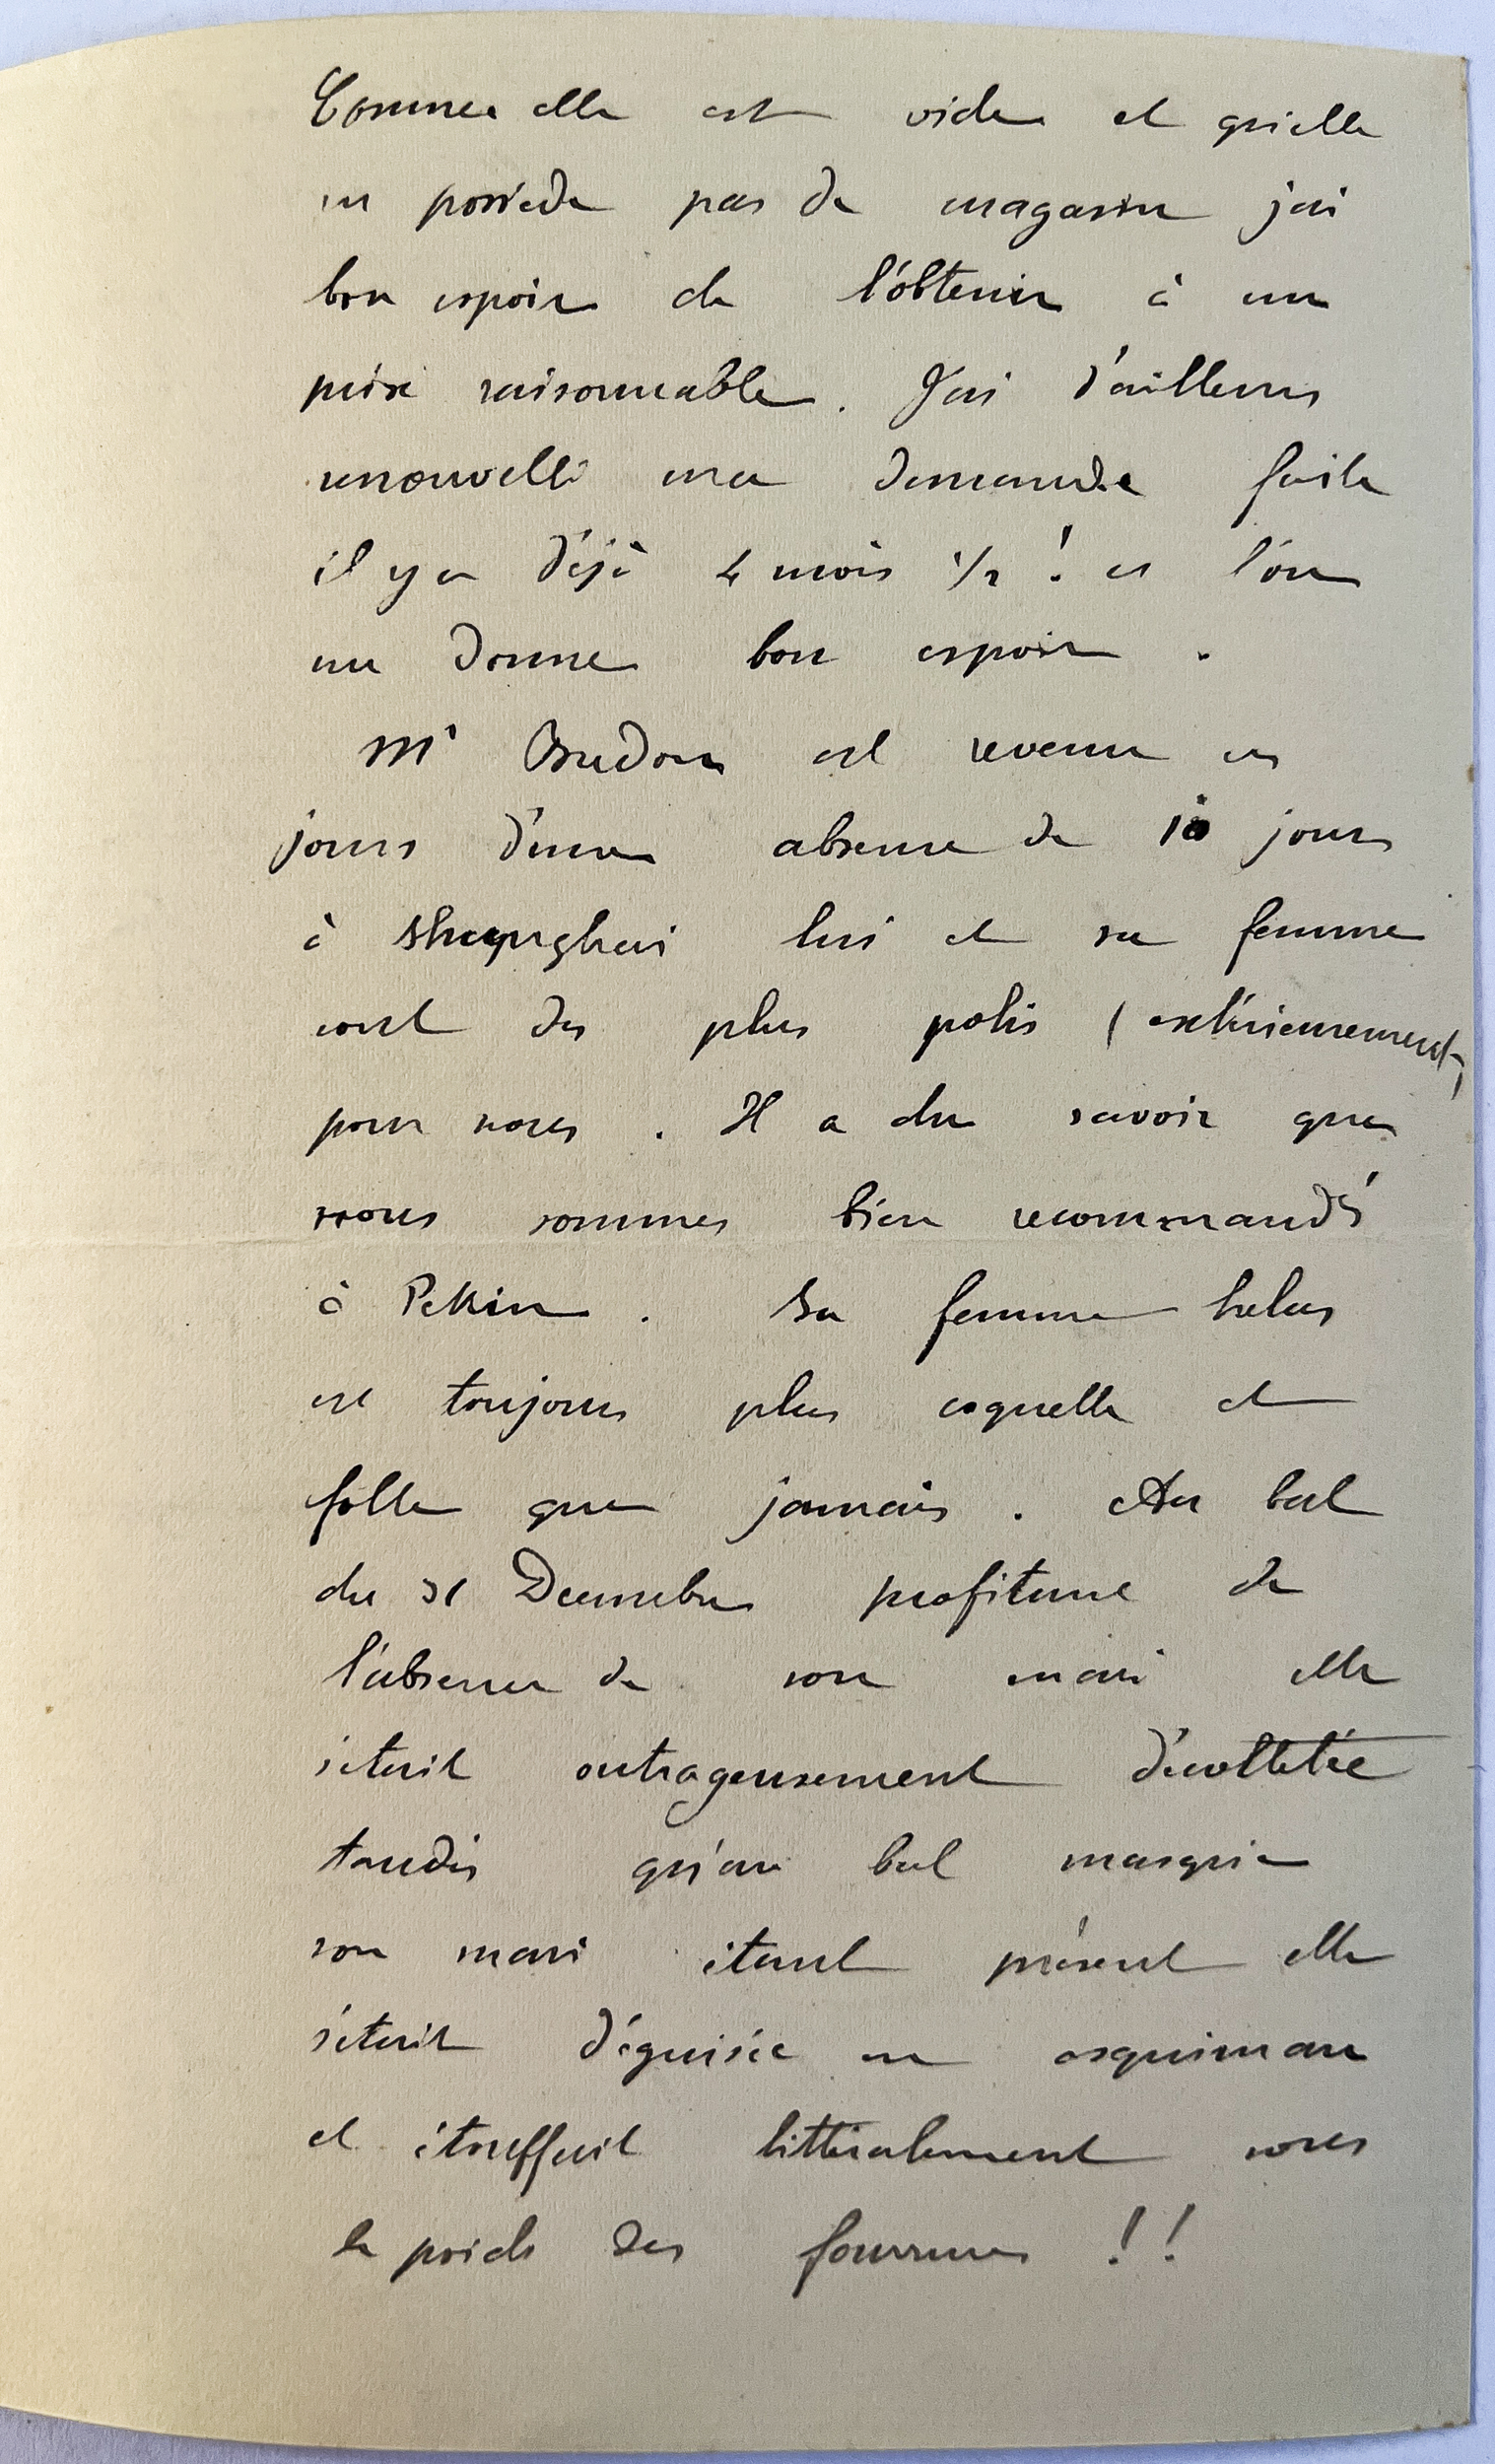 Comme elle est vide et qu'elle
ne possède pas de magasin j'ai
bon espoir de l'obtenir à un
prix raisonnable. J'ai d'ailleurs
renouvellé ma demande faite
il y a déjà 4 mois 1/2 ! et l'on
me donne bon espoir.
Mr est revenu ces
jours d'une absence de 10 jours
à Shanghai lui et sa femme
sont des plus polis (extérieurement)
pour nous. Il a du savoir que
nous sommes bien recommandés
à Pekin. Sa femme helas
est toujours plus coquette et
folle que jamais. Au bal
du 31 Decembre profitant de
l'absence de son mari elle
s'etait outrageusement décolletée
tandis qu'au bal masqué
son mari étant présent elle
s'était déguisée en esquimau
et étouffait littéralement sous
le poids des fourrures !!